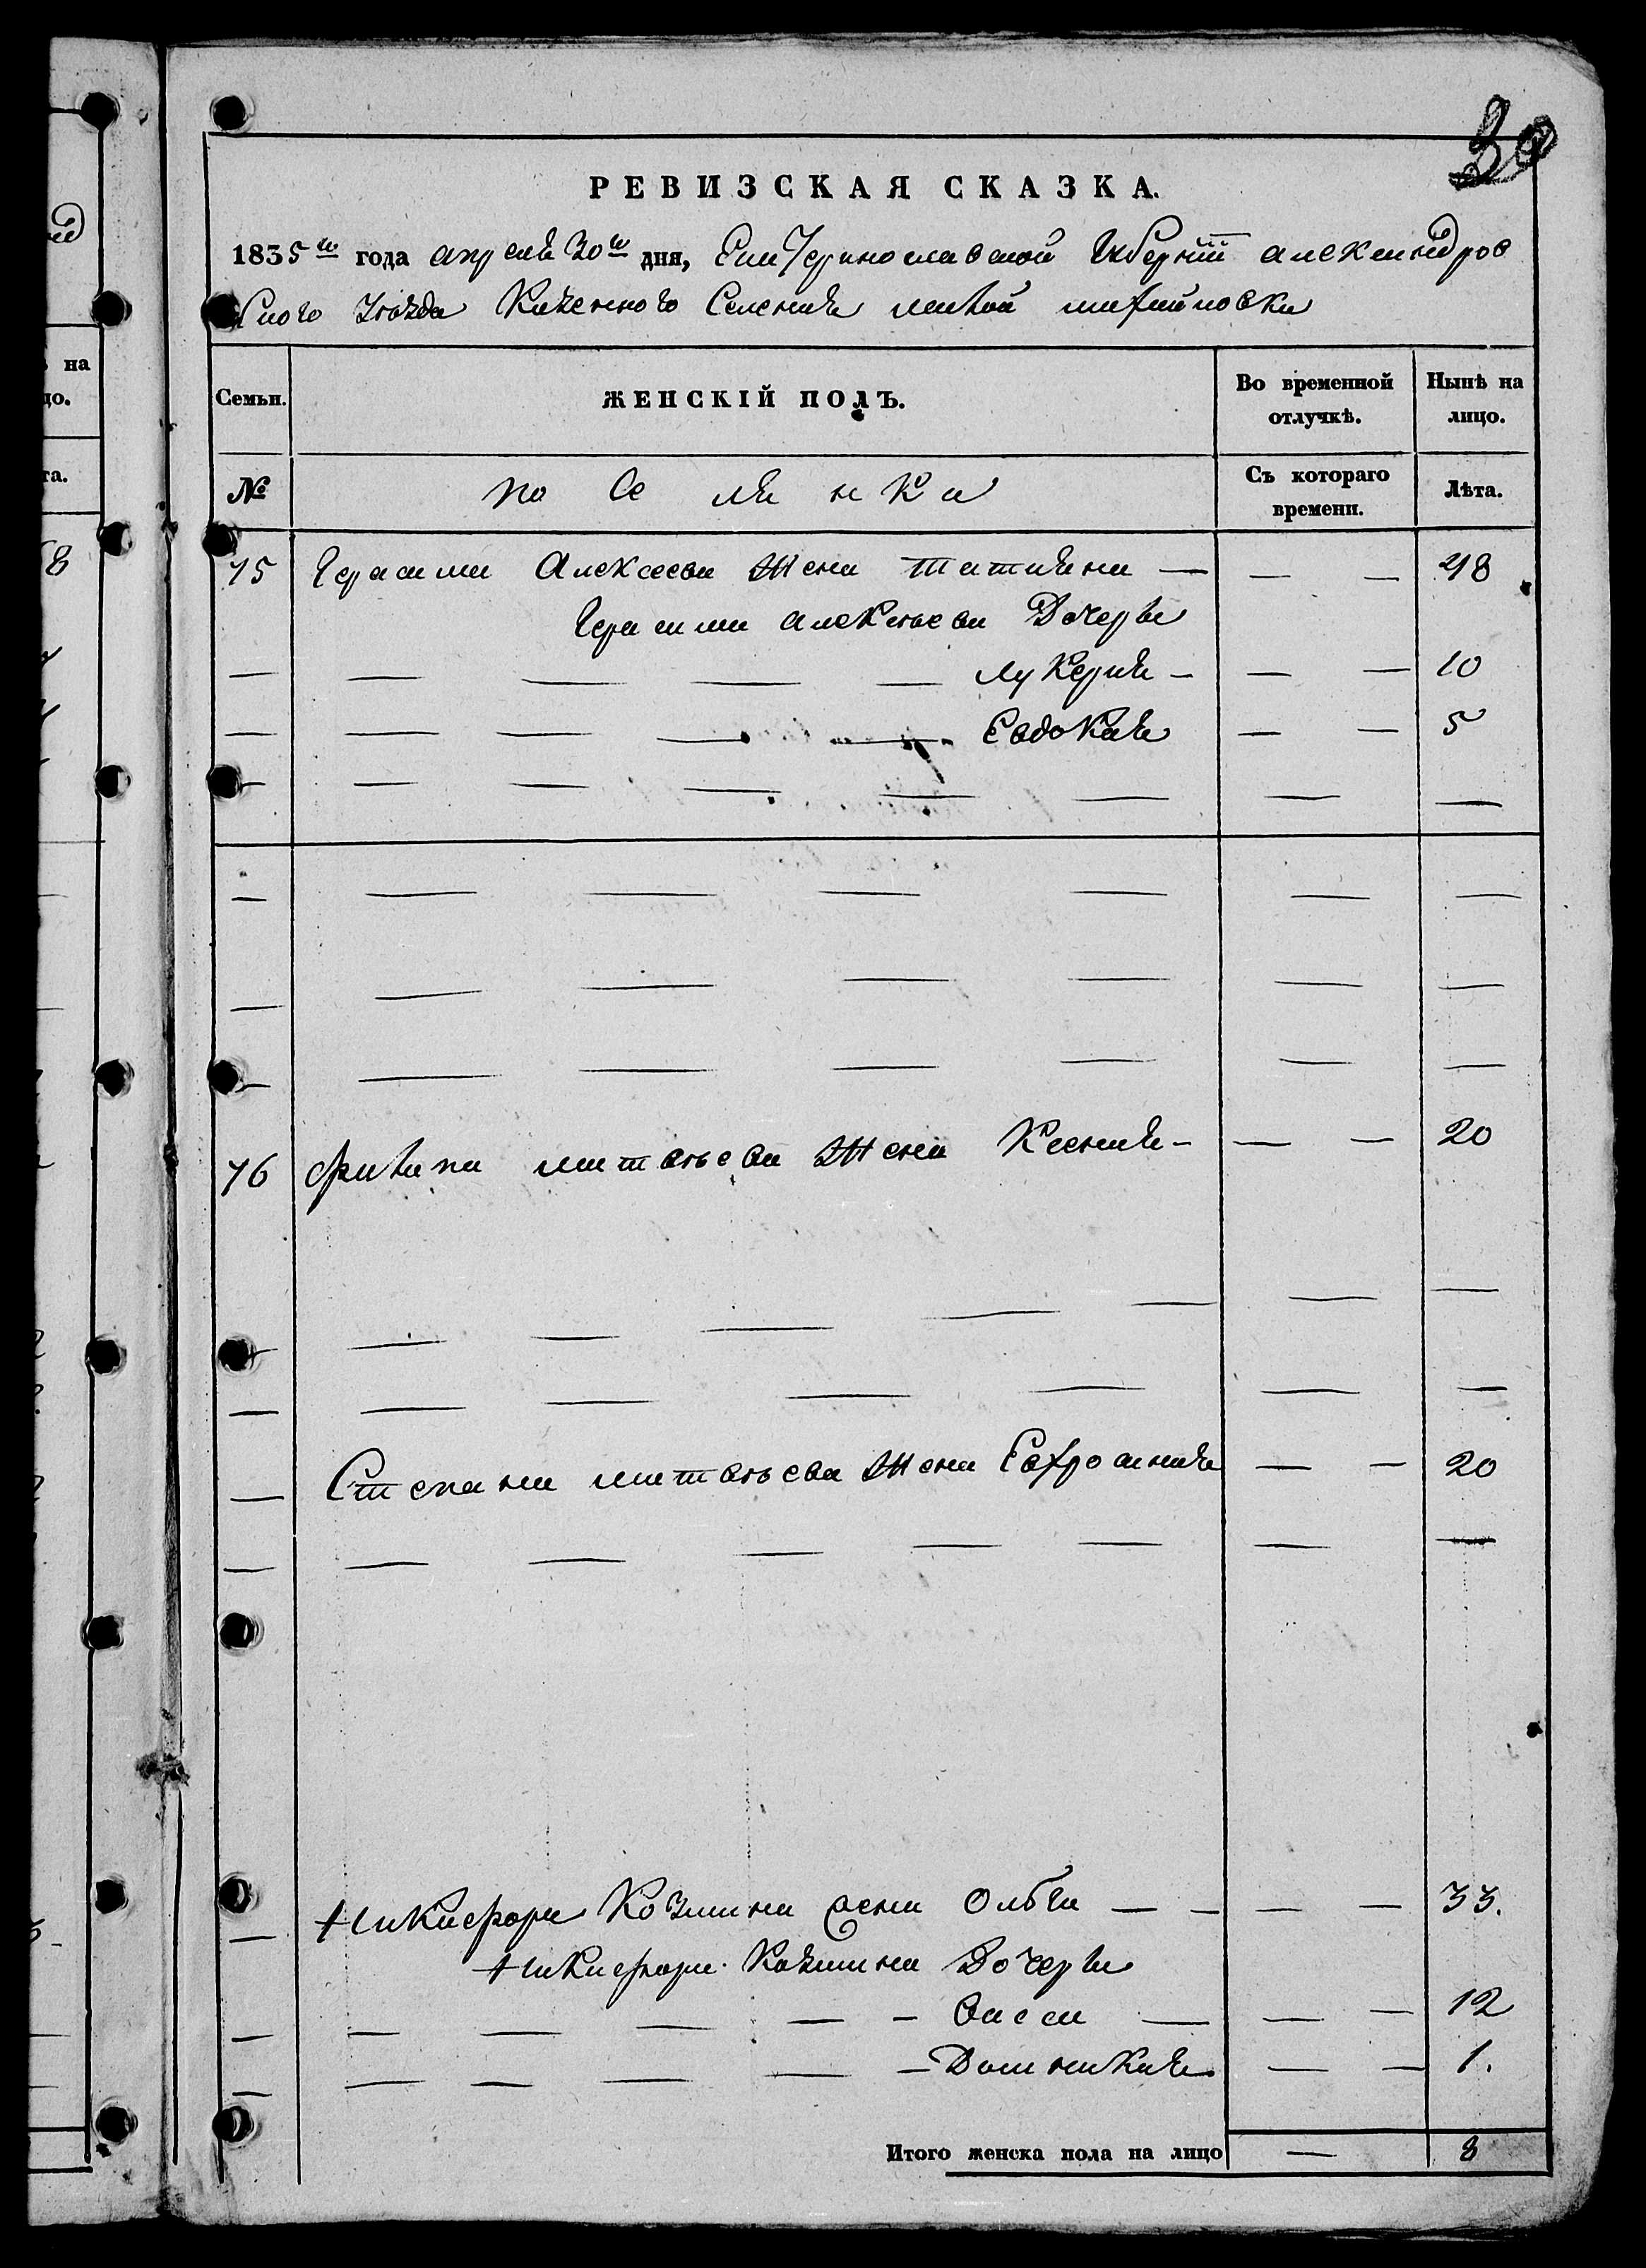 30
РЕВИЗСКАЯ СКАЗКА.
1835го года апреля 30го дня, Екатеринославской Губернии александров
ского уѣзда Казенного Селения малой михайловки
на
цо.
Семьи. ЖЕНСКІЙ ПОЛЪ. Во временной отлучкѣ. Нынѣ на лицо.
та.
№ поселянки Съ котораго времени. Лѣта.
8
75 Герасима Алексеева жена татияна — — — 28
Герасима алексѣева Дочеры
— — — — — лукерия — — — 10
— — — — — Евдокия — — 5
— — — — — — — —
— — — — — — —
— — — — — — —
— — — — — — —
76 филипа матвѣева жена Ксения — — — 20
— — — — — — —
— — — — — — —
— Степана матвѣева жена Евфросиния — — 20
— — — — — — — —
— Никифора Козмина жена Ольга — — — — 33.
Никифора Козмина Дочеры
— — — — — — Васса — — — 12
— — — — — — Домникия — — 1.
Итого женска пола на лицо — 8